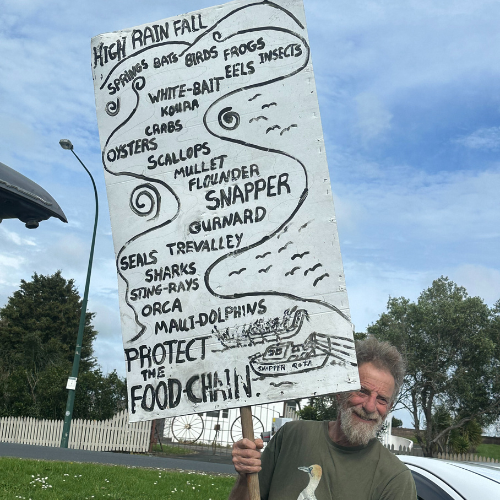 HIGH RAIN FALL
SPRINGS BATS BIRDS FROGS
WHITE-BAIT EELS INSECTS
KOURA
CRABS
OYSTERS
SCALLOPS
MULLET
FLOUNDER
SNAPPER
GURNARD
SEALS TREVALLEY
SHARKS
STING-RAYS
ORCA
MAUI-DOLPHINS
PROTECT
THE
FOOD-CHAIN.
SNAPPER